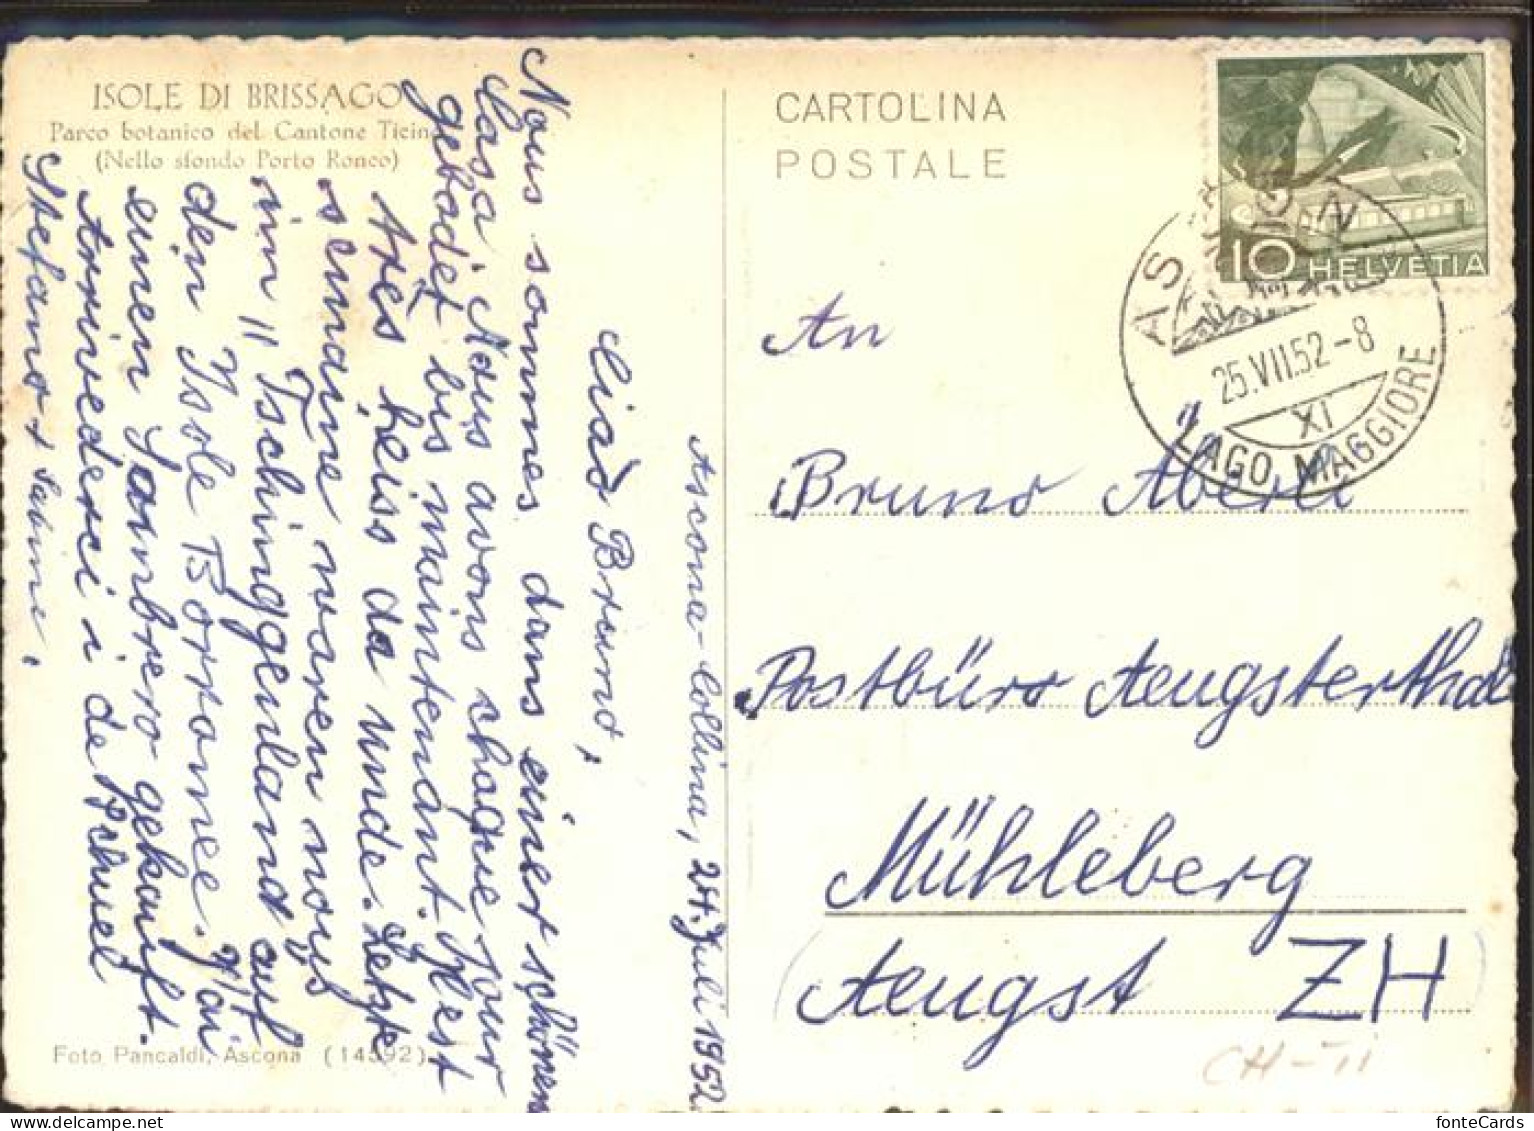 ISOLE DI BRISSAGO
Parco botanico del Cantone Ticino
(Nello sfondo Porto Ronco)
CARTOLINA
POSTALE
10 HELVETIA
ASCONA
25.VII.52-8
XI
LAGO MAGGIORE
An
Bruno Aberli
Postbüro Aeugsterthal
Mühleberg
Aeugst ZH
CH-TI
Ascona-Collina, 24. Juli 1952
Ciao Bruno,
Nous sommes dans einer schönen
Casa. Nous avons chaque jour
gebadet bis maintenant. Il est
très heiss da unde. Letzte
semaine waren nous
im "Tschinggenland auf
den Isole Borromee. J'ai
einen Sombrero gekauft.
Arrivederci i de Schuel
Stefano + Sabine.
Foto Pancaldi, Ascona (14592)
fonteCards